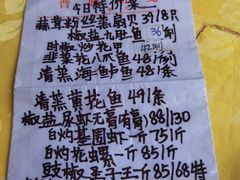 今日特价菜
蒜茸粉丝蒸扇贝 39/8只
椒盐九肚鱼 36/例
豉椒炒花甲 42/例
韭菜花八爪鱼 48/例
清蒸海鲈鱼 48/条
清蒸黄花鱼 49/条
椒盐尿虾无膏/有膏 88/130
白灼基围虾一斤 75/斤
白灼花螺一斤 85/斤
豉椒圣子王一斤 85/68特